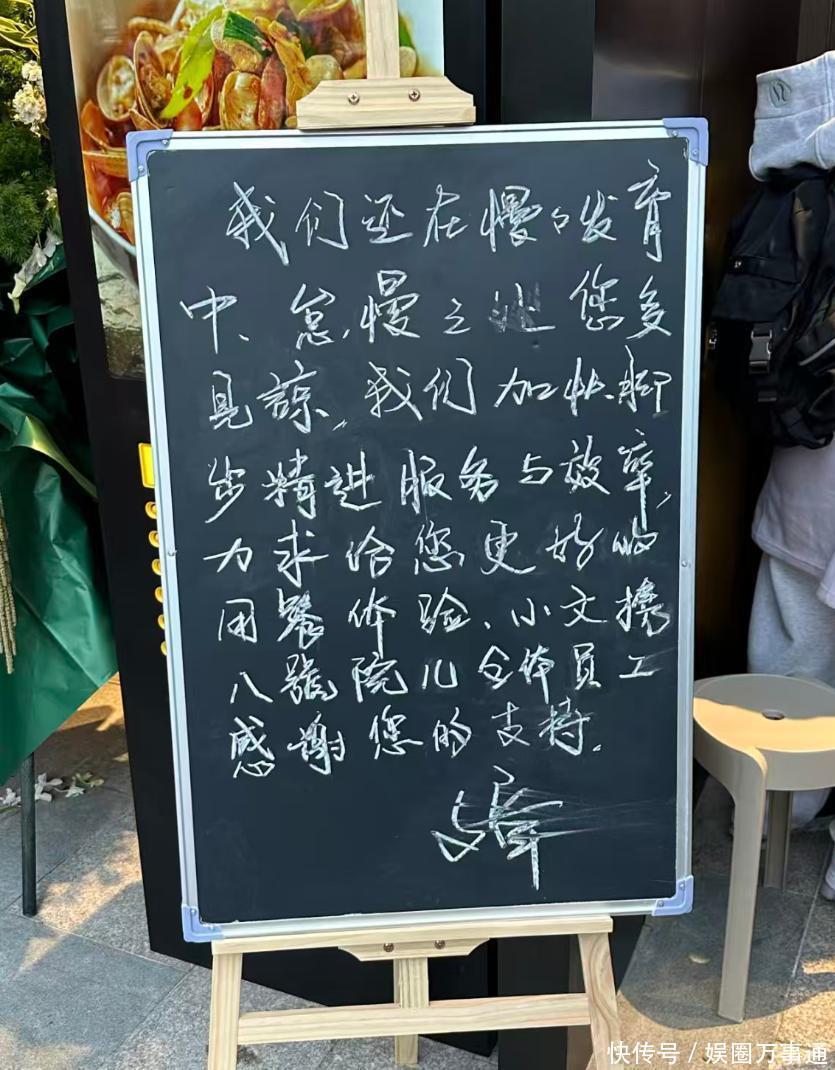 我们还在慢々发育
中、怠慢之处您多
見諒、我们加快脚
步精进服务与效率,
力求给您更好的
用餐体验、小文携
八號院儿全体員工
感谢您的支持.
快传号/娱圈万事通